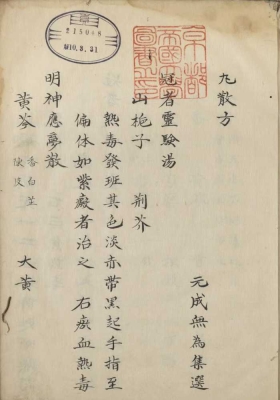 京都
帝國大學
圖書之印
215046
丸散方
元成無為集選
冠者靈験湯
山梔子 荊芥
熱毒發班其色淡赤帶黒起手指至
偏体如紫癜者治之 右瘀血熱毒
明神應夢散
黄芩 香白芷 陳皮 大黄